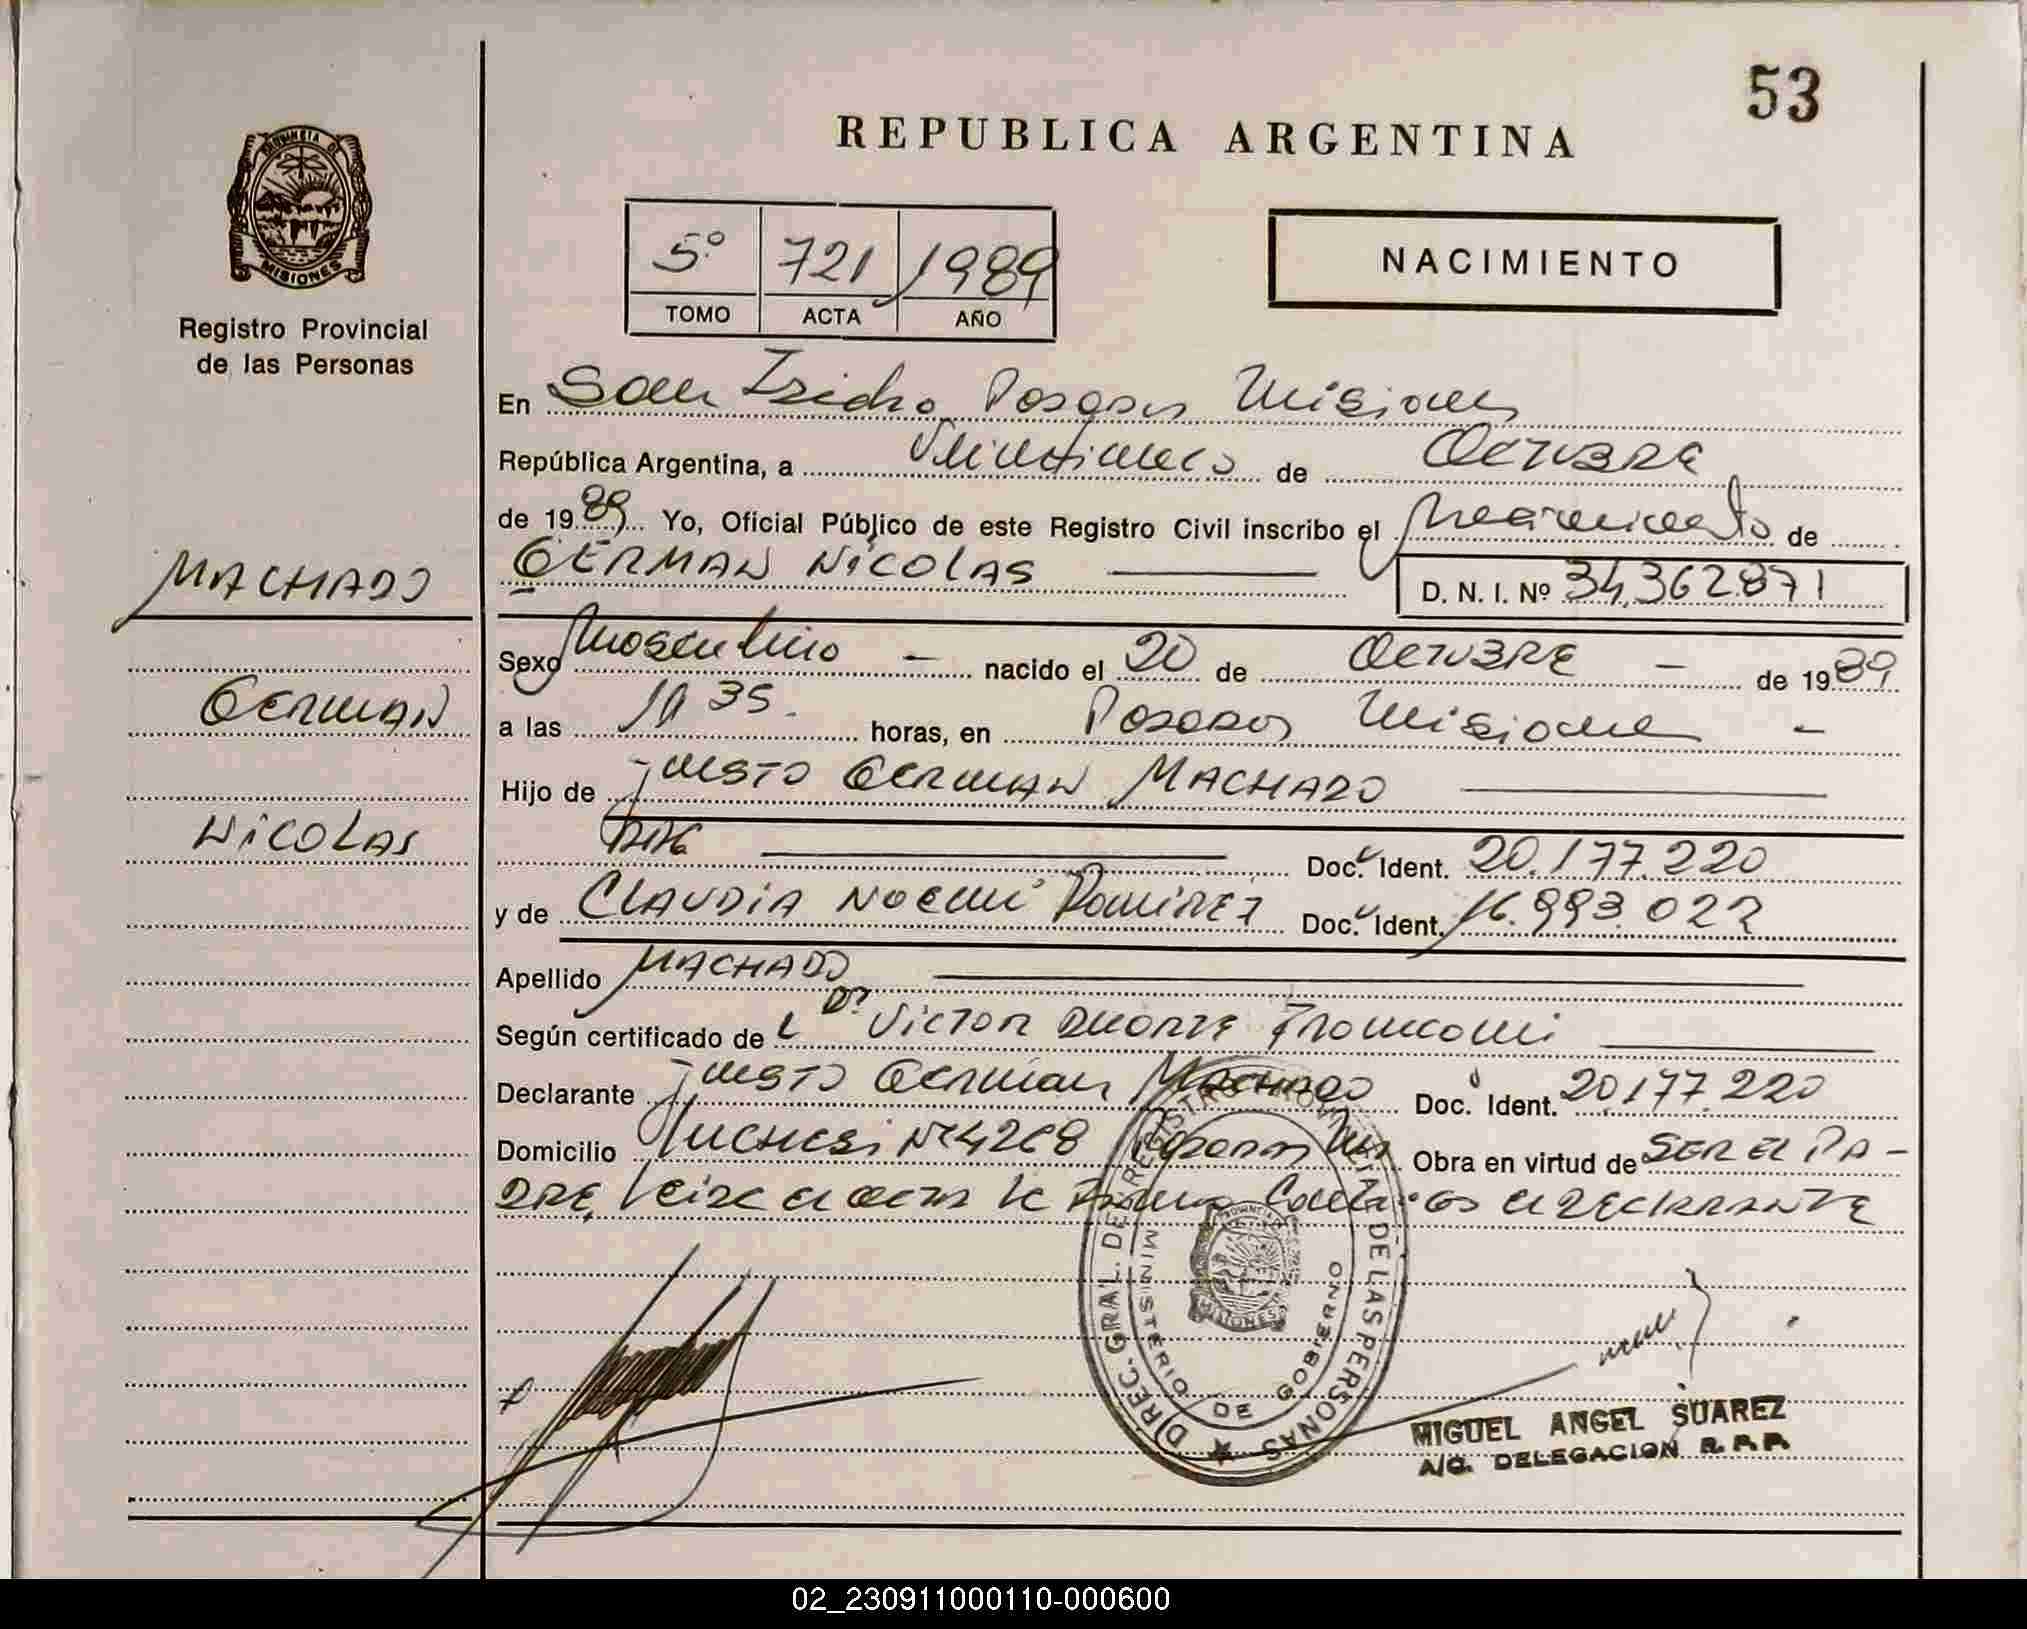 53
REPUBLICA ARGENTINA
PROVINCIA DE
MISIONES
Registro Provincial
de las Personas
5º 721 1989
TOMO ACTA AÑO
NACIMIENTO
En San Isidro Posadas Misiones
República Argentina, a Veinticinco de OCTUBRE
de 1989 Yo, Oficial Público de este Registro Civil inscribo el Nacimiento de
GERMAN NICOLAS D. N. I. Nº 34.362.871
MACHADO
GERMAN
NICOLAS
Sexo Masculino - nacido el 20 de OCTUBRE - de 1989
a las 35 horas, en Posadas Misiones -
Hijo de JUSTO GERMAN MACHADO
Doc. Ident. 20.177.220
y de CLAUDIA NOEMI RAMIREZ Doc. Ident. 16.993.022
Apellido MACHADO
Según certificado de Dr VICTOR DUARTE
Declarante JUSTO GERMAN MACHADO Doc. Ident. 20.177.220
Domicilio Nº 4268 Posadas Mis Obra en virtud de SER EL PA-
DRE, el acta la el DECLARANTE
DIREC. GRAL. DE REGISTRO PROVINCIAL DE LAS PERSONAS
MINISTERIO DE GOBIERNO
PROVINCIA DE
MISIONES
MIGUEL ANGEL SUAREZ
A/C. DELEGACION R. P. P.
02_230911000110-000600